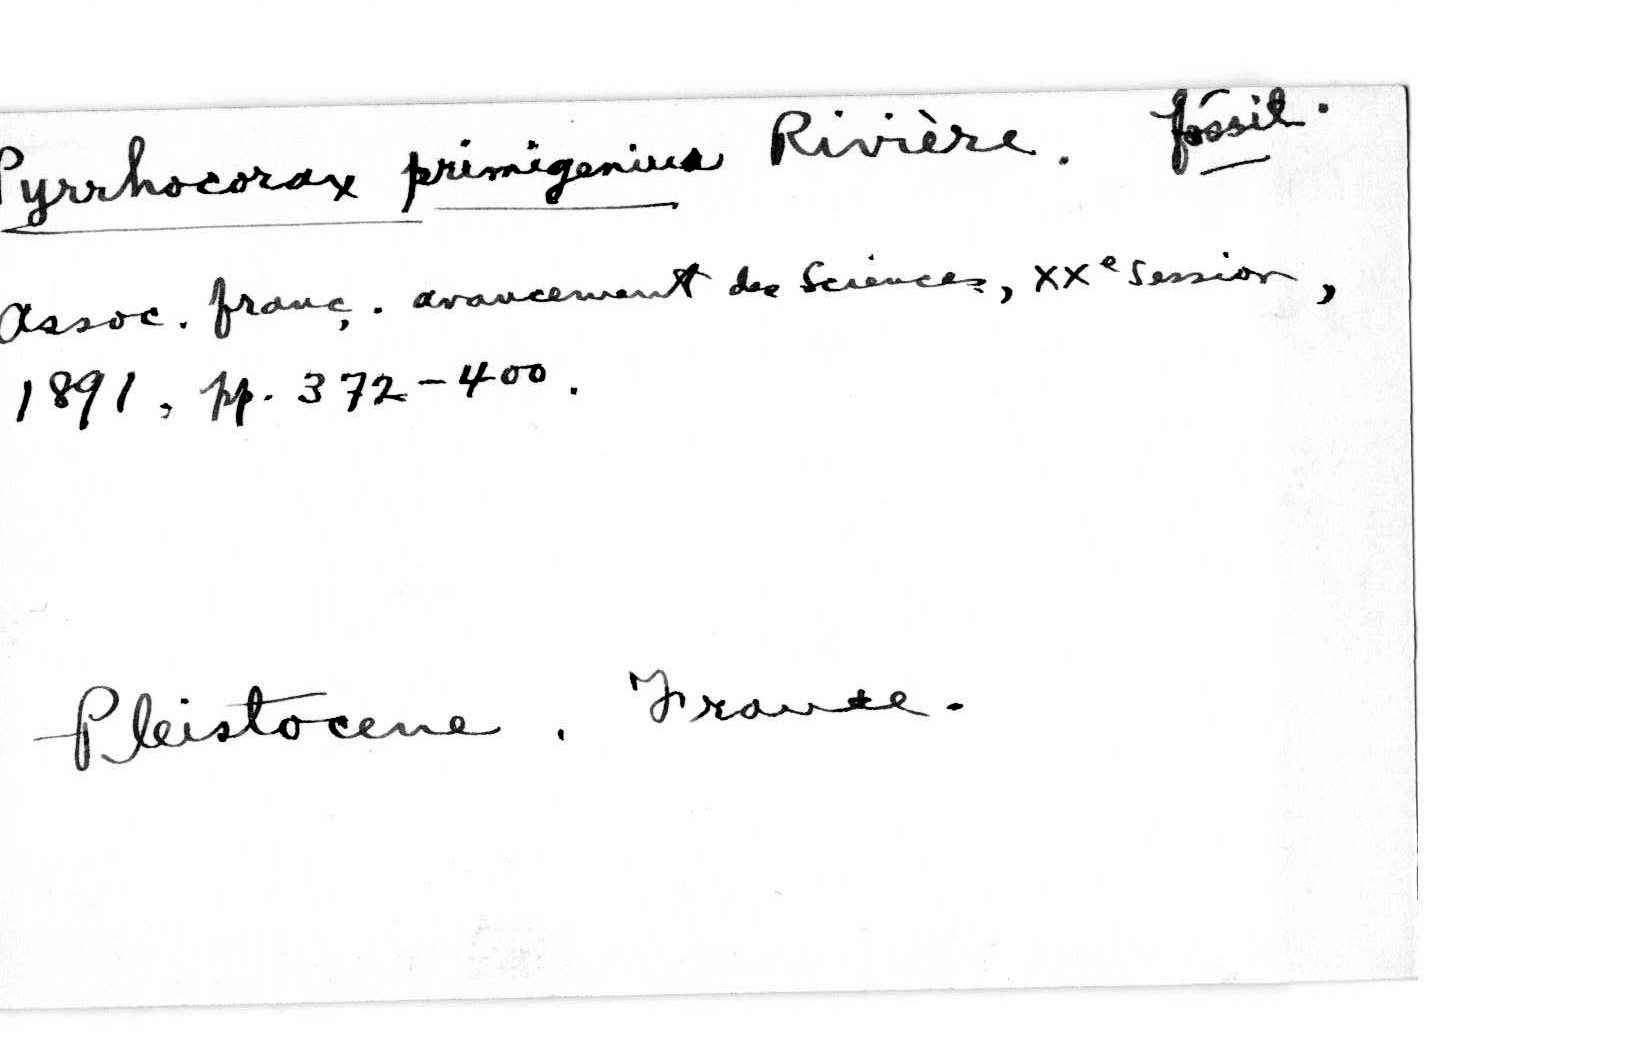 Pyrrhocorax primigenius Rivière. fossil.
Assoc. franç. avancement des Sciences, XXe Session,
1891, pp. 372-400.
Pleistocene. France.